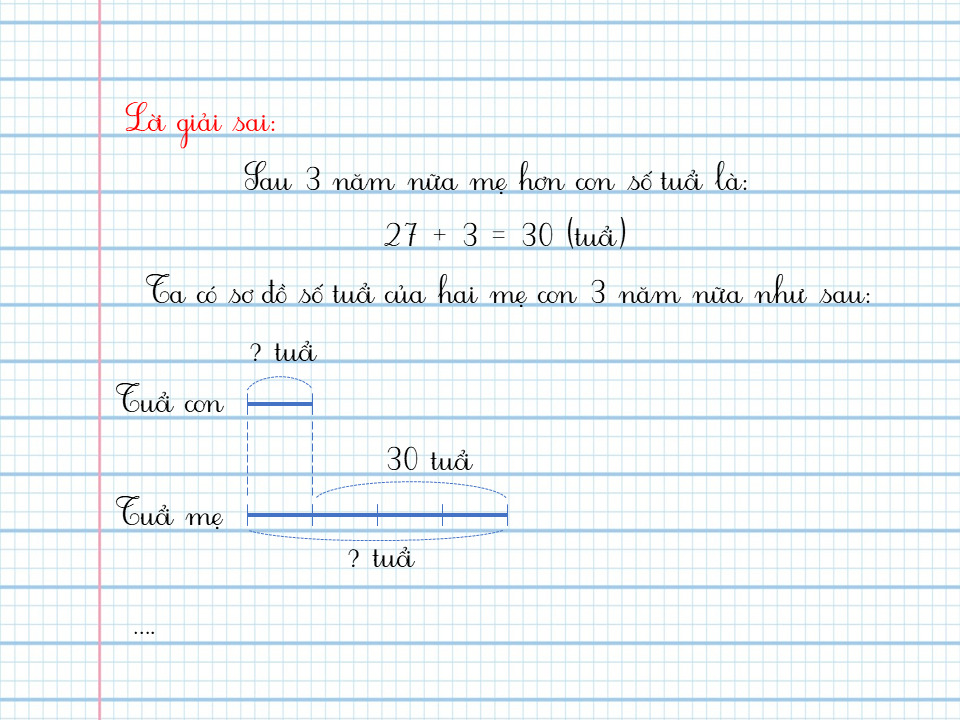 Lời giải sai:
Sau 3 năm nữa mẹ hơn con số tuổi là:
27 + 3 = 30 (tuổi)
Ta có sơ đồ số tuổi của hai mẹ con 3 năm nữa như sau:
? tuổi
Tuổi con
30 tuổi
Tuổi mẹ
? tuổi
....